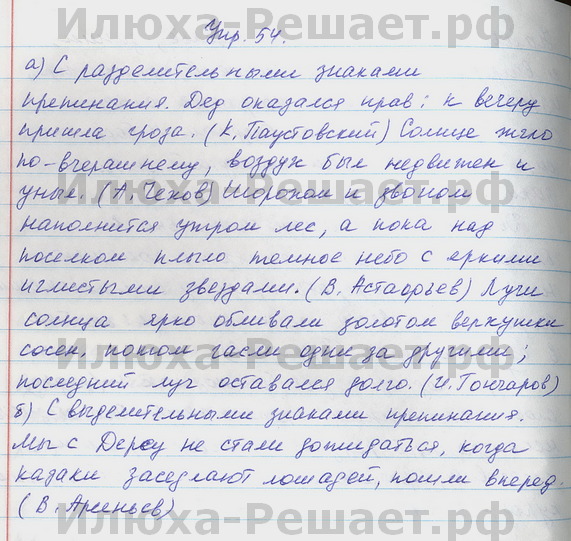 Илюха-Решает.рф
Упр. 54.
а) С разделительными знаками
препинания. Дед оказался прав: к вечеру
пришла гроза. (К. Паустовский) Солнце жгло
по-вчерашнему, воздух был недвижен и
уныл. (А. Чехов) Шорохом и звоном
наполнится утром лес, а пока над
поселком плыло темное небо с яркими
иглистыми звездами. (В. Астафьев) Лучи
солнца ярко обливали золотом верхушки
сосен, потом гасли одни за другими;
последний луч оставался долго. (И. Гончаров)
б) С выделительными знаками препинания.
Мы с Дерсу не стали дожидаться, когда
казаки заседлают лошадей, пошли вперед.
(В. Арсеньев)
Илюха-Решает.рф